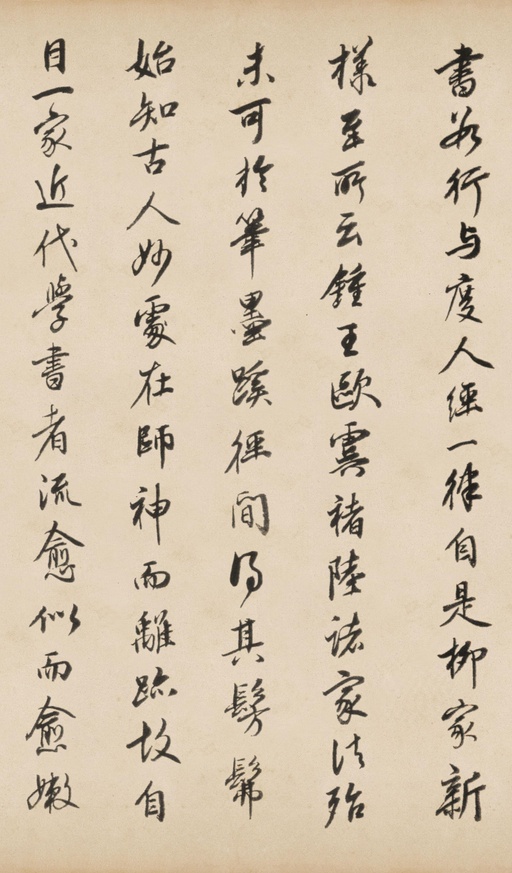 書数行与度人經一律自是柳家新
樣至所云鍾王歐虞褚陸諸家法殆
未可於筆墨蹊徑間得其髣髴
始知古人妙處在師神而離跡故自
目一家近代學書者流愈似而愈嫩